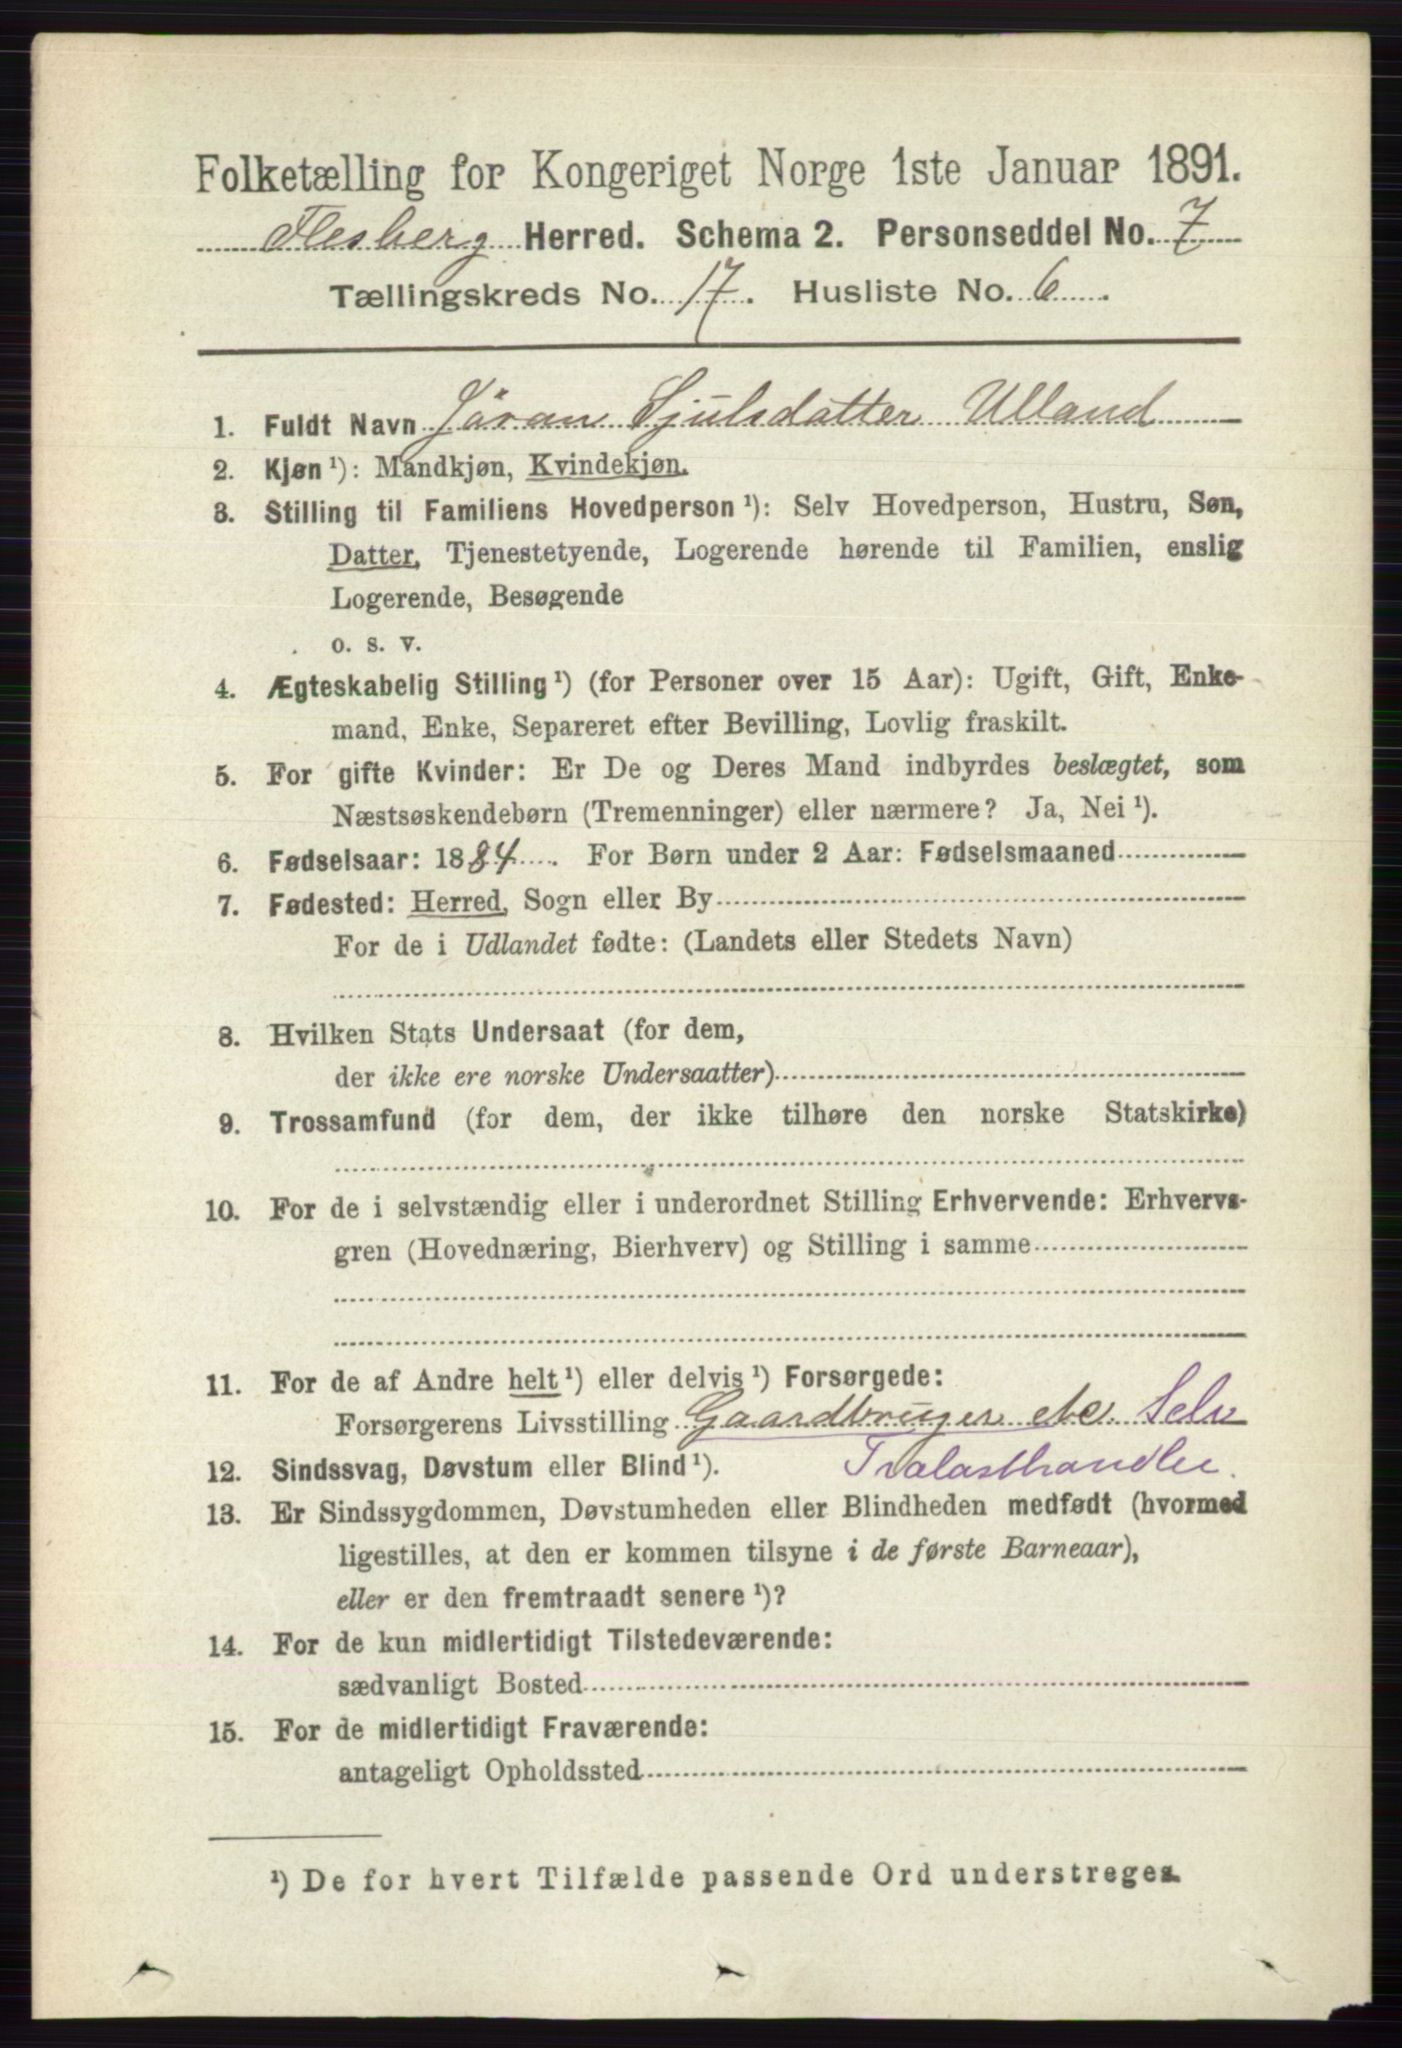 Folketælling for Kongeriget Norge 1ste Januar 1891.
Flesberg Herred. Schema 2. Personseddel No. 7
Tællingskreds No. 17. Husliste No. 6.
1. Fuldt Navn Jöran Sjulsdatter Ulland
2. Kjøn ¹): Mandkjøn, Kvindekjøn.
3. Stilling til Familiens Hovedperson ¹): Selv Hovedperson, Hustru, Søn,
Datter, Tjenestetyende, Logerende hørende til Familien, enslig
Logerende, Besøgende
o. s. v.
4. Ægteskabelig Stilling ¹) (for Personer over 15 Aar): Ugift, Gift, Enke-
mand, Enke, Separeret efter Bevilling, Lovlig fraskilt.
5. For gifte Kvinder: Er De og Deres Mand indbyrdes beslægtet, som
Næstsøskendebørn (Tremenninger) eller nærmere? Ja, Nei ¹).
6. Fødselsaar: 1884. For Børn under 2 Aar: Fødselsmaaned
7. Fødested: Herred, Sogn eller By
For de i Udlandet fødte: (Landets eller Stedets Navn)
8. Hvilken Stats Undersaat (for dem,
der ikke ere norske Undersaatter)
9. Trossamfund (for dem, der ikke tilhøre den norske Statskirke)
10. For de i selvstændig eller i underordnet Stilling Erhvervende: Erhvervs-
gren (Hovednæring, Bierhverv) og Stilling i samme
11. For de af Andre helt ¹) eller delvis ¹) Forsørgede:
Forsørgerens Livsstilling Gaardbruger etc. Selv
12. Sindssvag, Døvstum eller Blind ¹). Trælasthandler.
13. Er Sindssygdommen, Døvstumheden eller Blindheden medfødt (hvormed
ligestilles, at den er kommen tilsyne i de første Barneaar),
eller er den fremtraadt senere ¹)?
14. For de kun midlertidigt Tilstedeværende:
sædvanligt Bosted
15. For de midlertidigt Fraværende:
antageligt Opholdssted
¹) De for hvert Tilfælde passende Ord understreges.